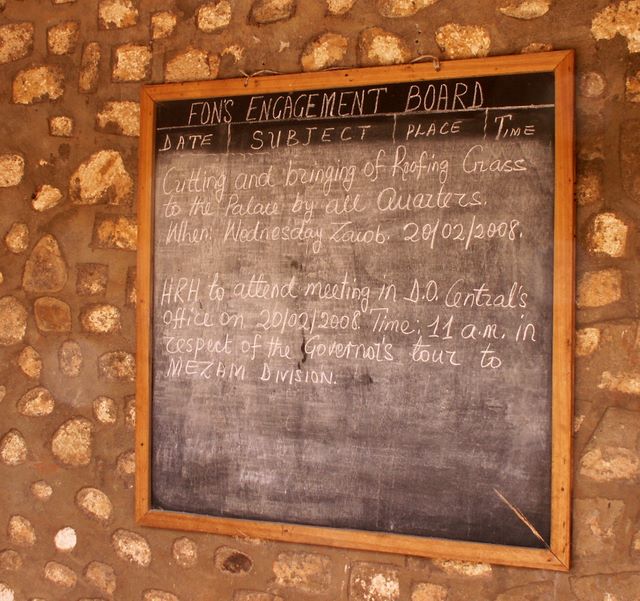 FON'S ENGAGEMENT BOARD
DATE SUBJECT PLACE TIME
Cutting and bringing of Roofing Grass
to the Palace by all Quarters.
When: Wednesday 20/02/2008.
HRH to attend meeting in D.O. Central's
office on 20/02/2008. Time: 11 a.m. in
respect of the Governor's tour to
MEZAM DIVISION.